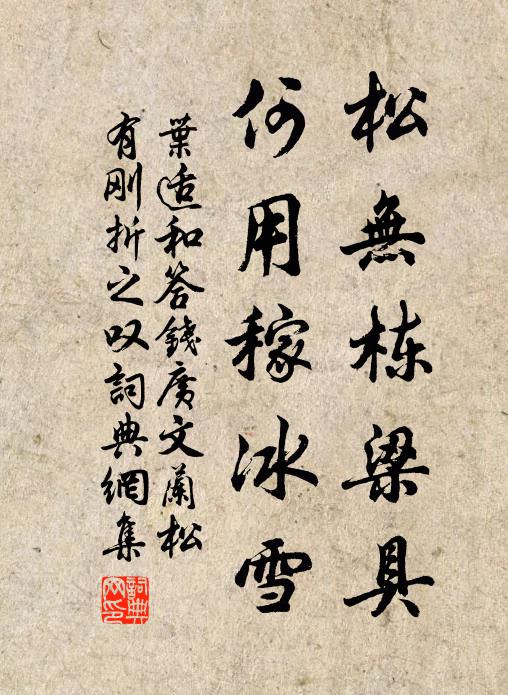 松無棟梁具
何用稼冰雪
葉适和答錢廣文蘭松
有刚折之叹詞典網集
詞典
网印